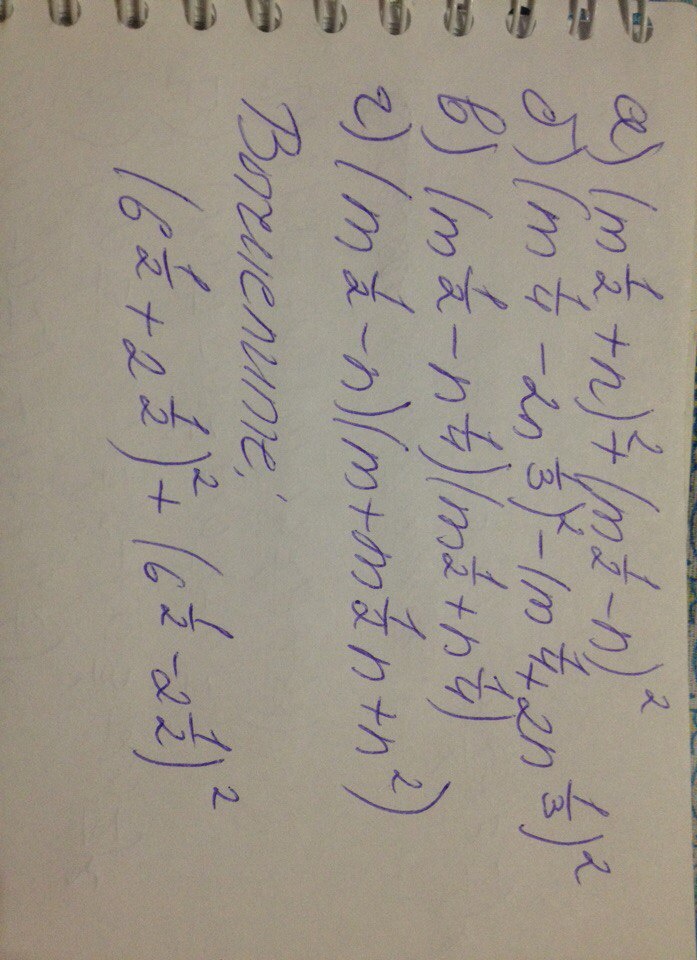 а) (m^{1/2} + n)^2 + (m^{1/2} - n)^2
б) (m^{1/4} - 2n^{1/3})^2 - (m^{1/4} + 2n^{1/3})^2
в) (m^{1/2} - n^{1/4})(m^{1/2} + n^{1/4})
г) (m^{1/2} - n)(m + m^{1/2} n + n^2)
Вычислите:
(6^{1/2} + 2^{1/2})^2 + (6^{1/2} - 2^{1/2})^2